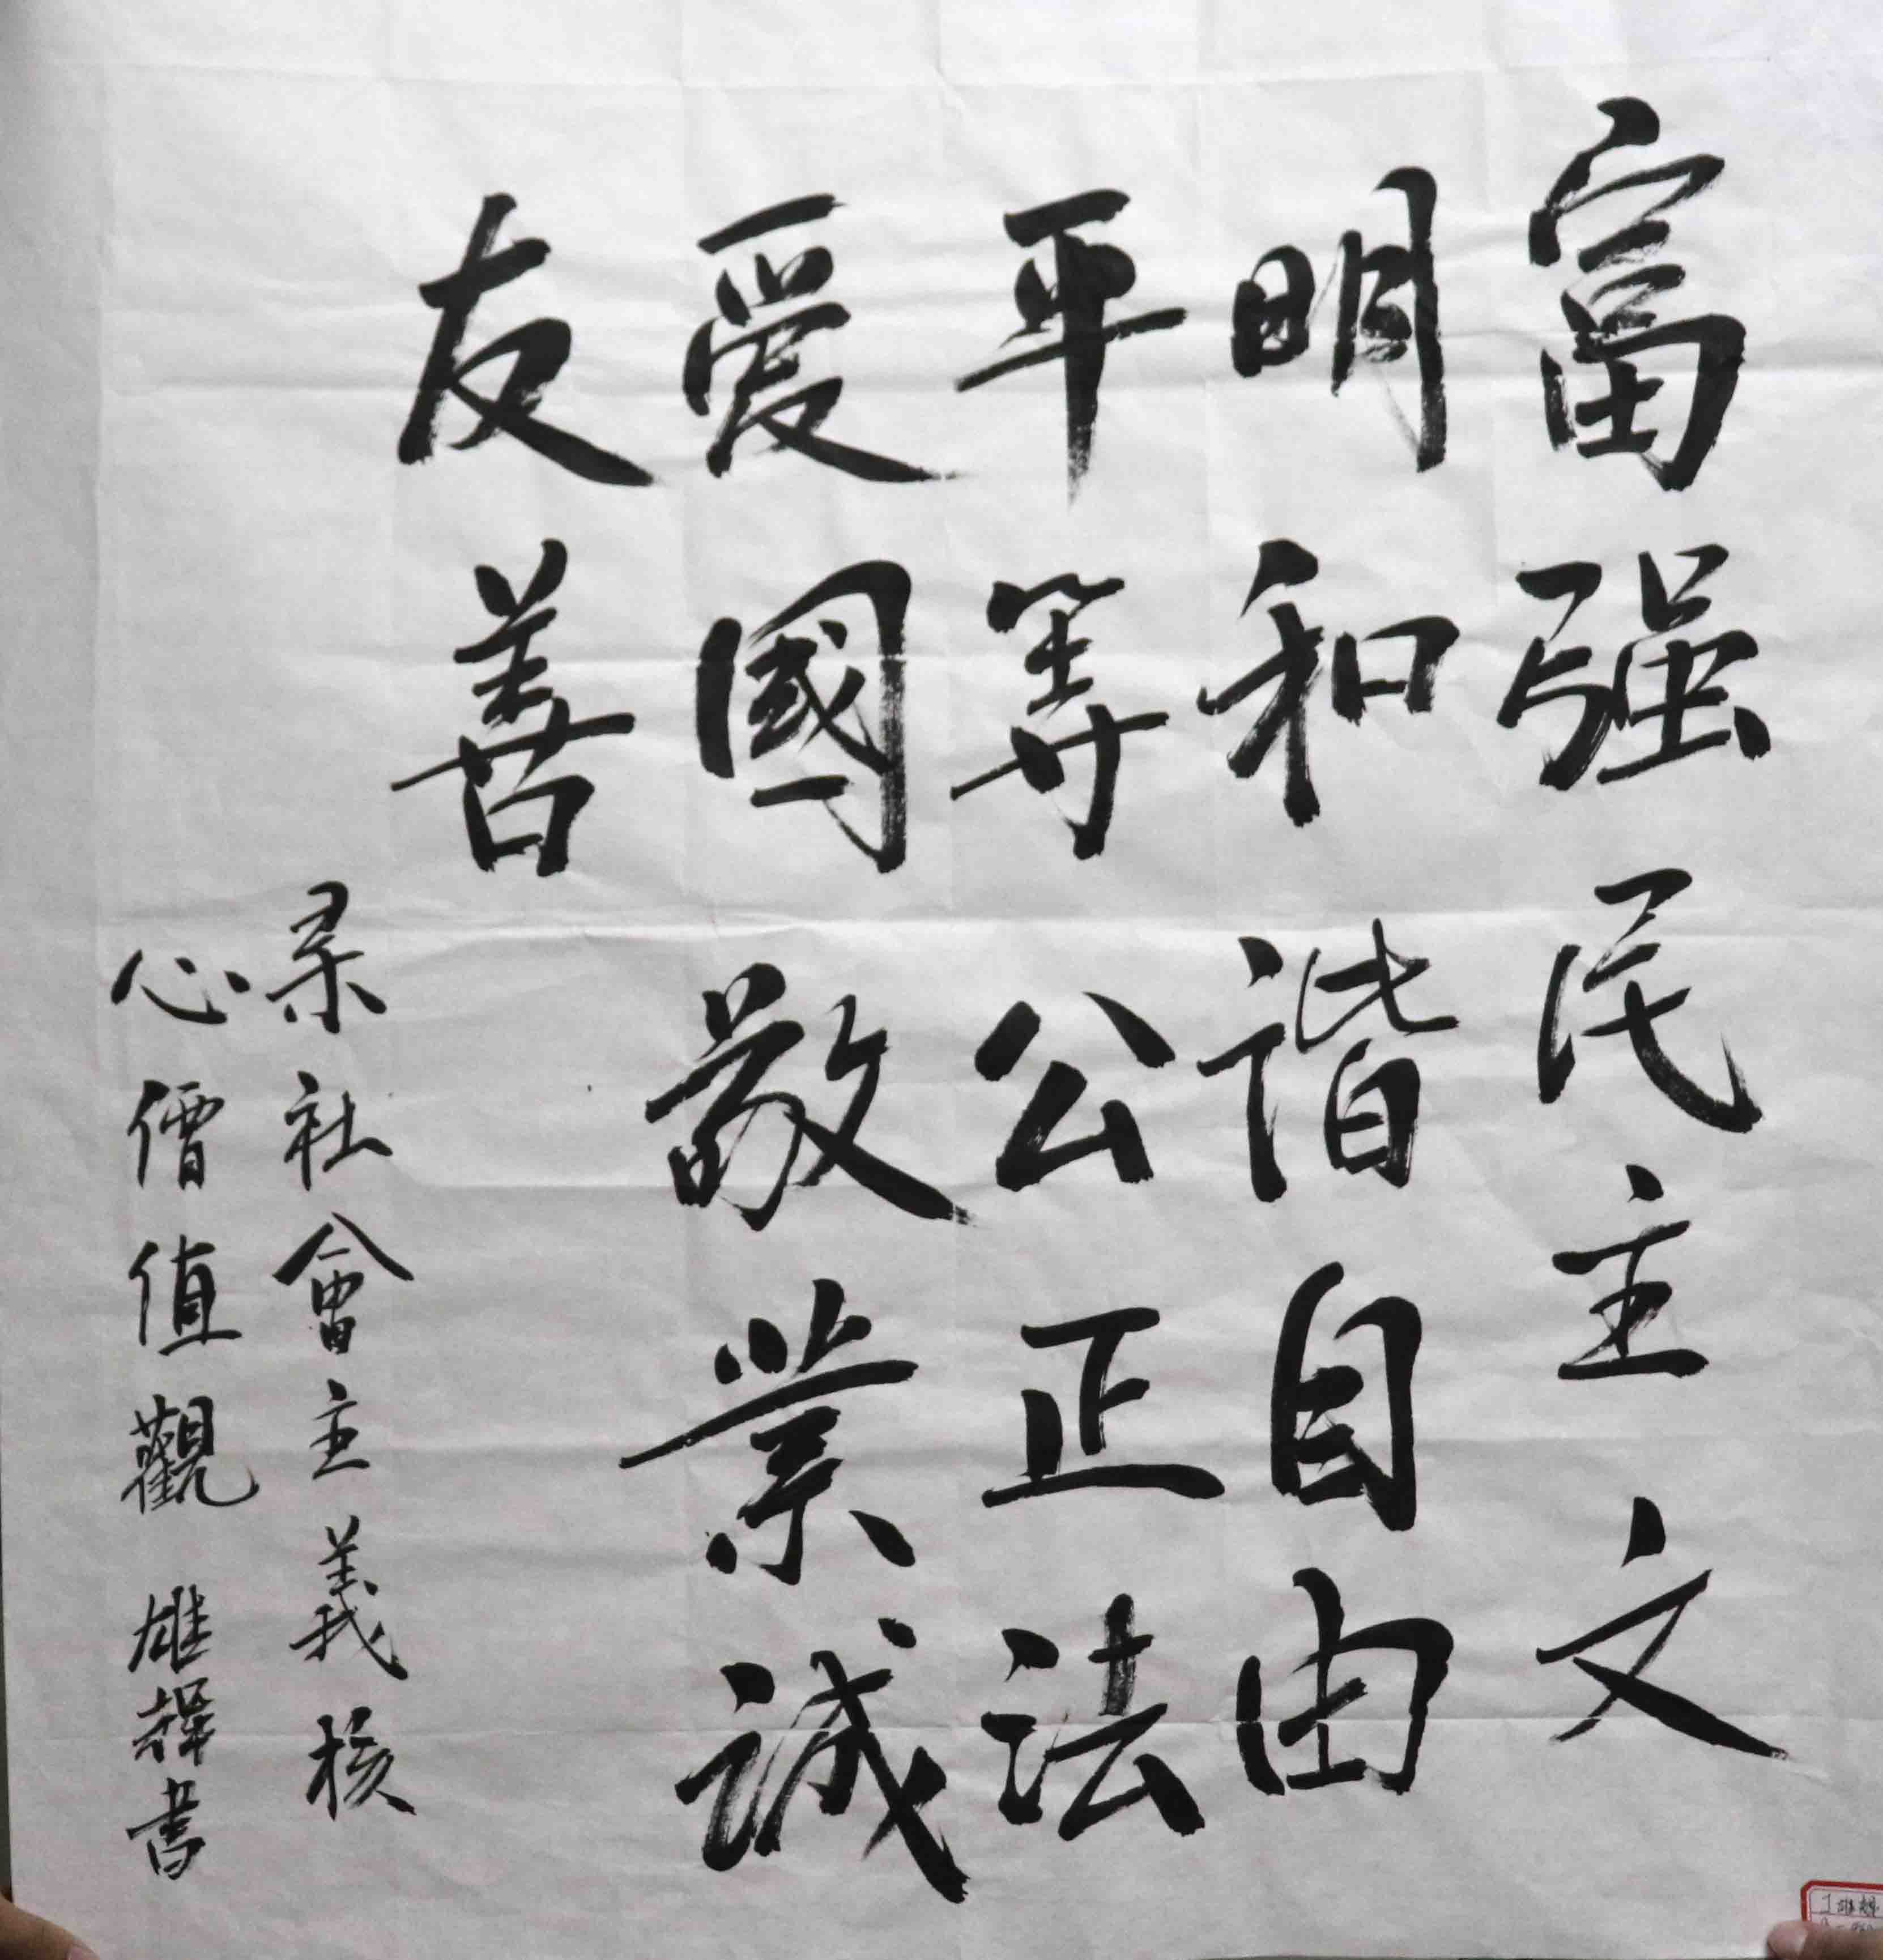 富强民主文
明和谐自由
平等公正法
愛國敬業诚
友善
录社會主義核
心價值觀 雄書